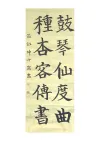 鼓琴仙度曲
種杏客傳書